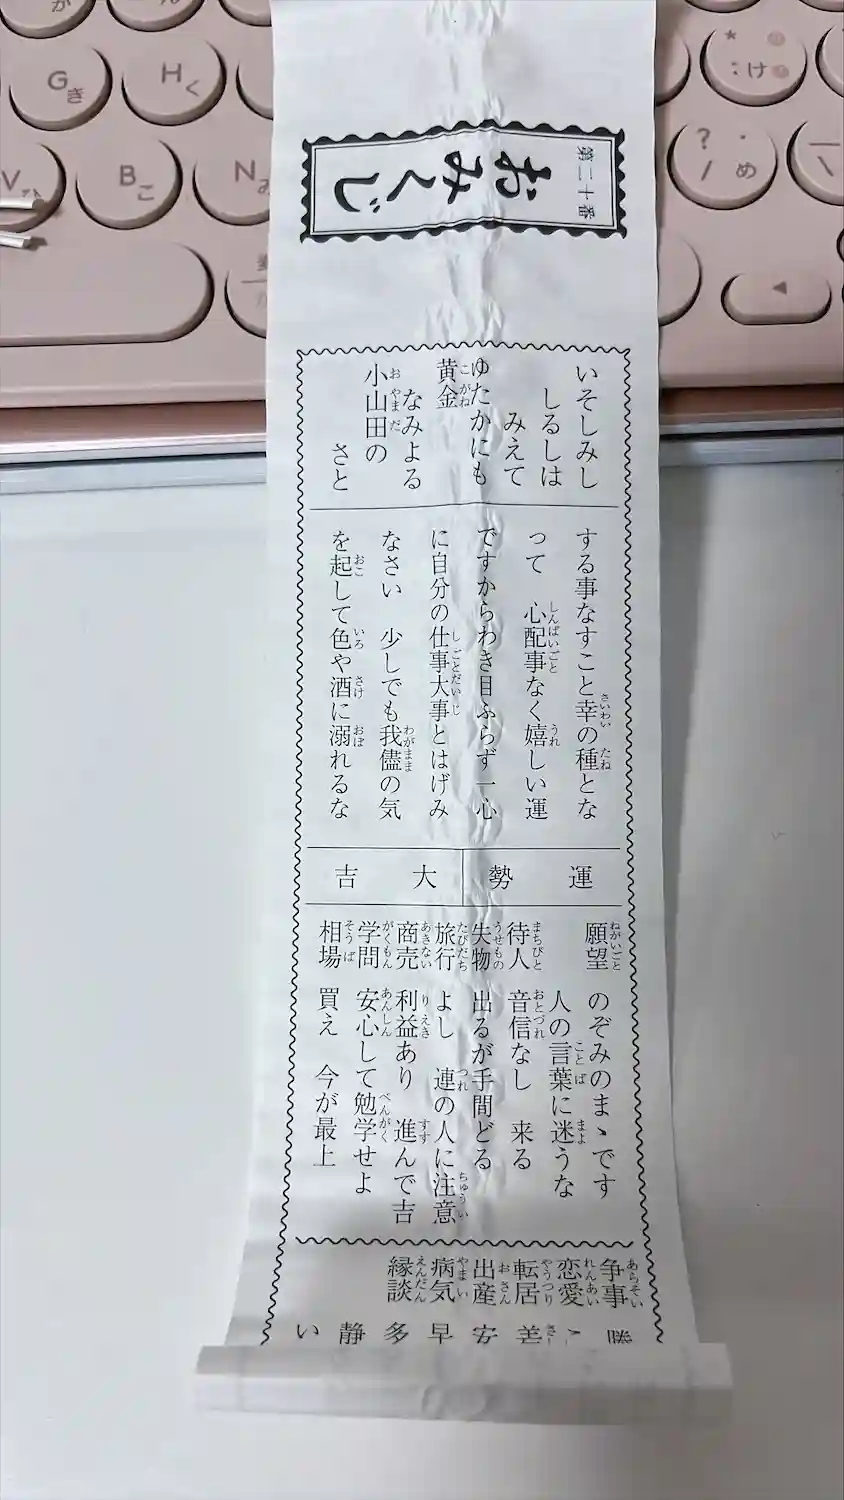 第二十番
おみくじ
いそしみし
しるしは
みえて
ゆたかにも
黄金
なみよる
小山田の
さと
する事なすこと幸の種とな
って 心配事なく嬉しい運
ですからわき目ふらず一心
に自分の仕事大事とはげみ
なさい 少しでも我儘の気
を起して色や酒に溺れるな
運勢 大吉
願望 のぞみのまゝです
人の言葉に迷うな
待人 音信なし 来る
失物 出るが手間どる
旅行 よし 連の人に注意
商売 利益あり 進んで吉
学問 安心して勉学せよ
相場 買え 今が最上
争事 勝
恋愛
転居 差
出産 安
病気 早
縁談 多
静
い
G き
H く
V
B こ
N
* : け
? ・ / め